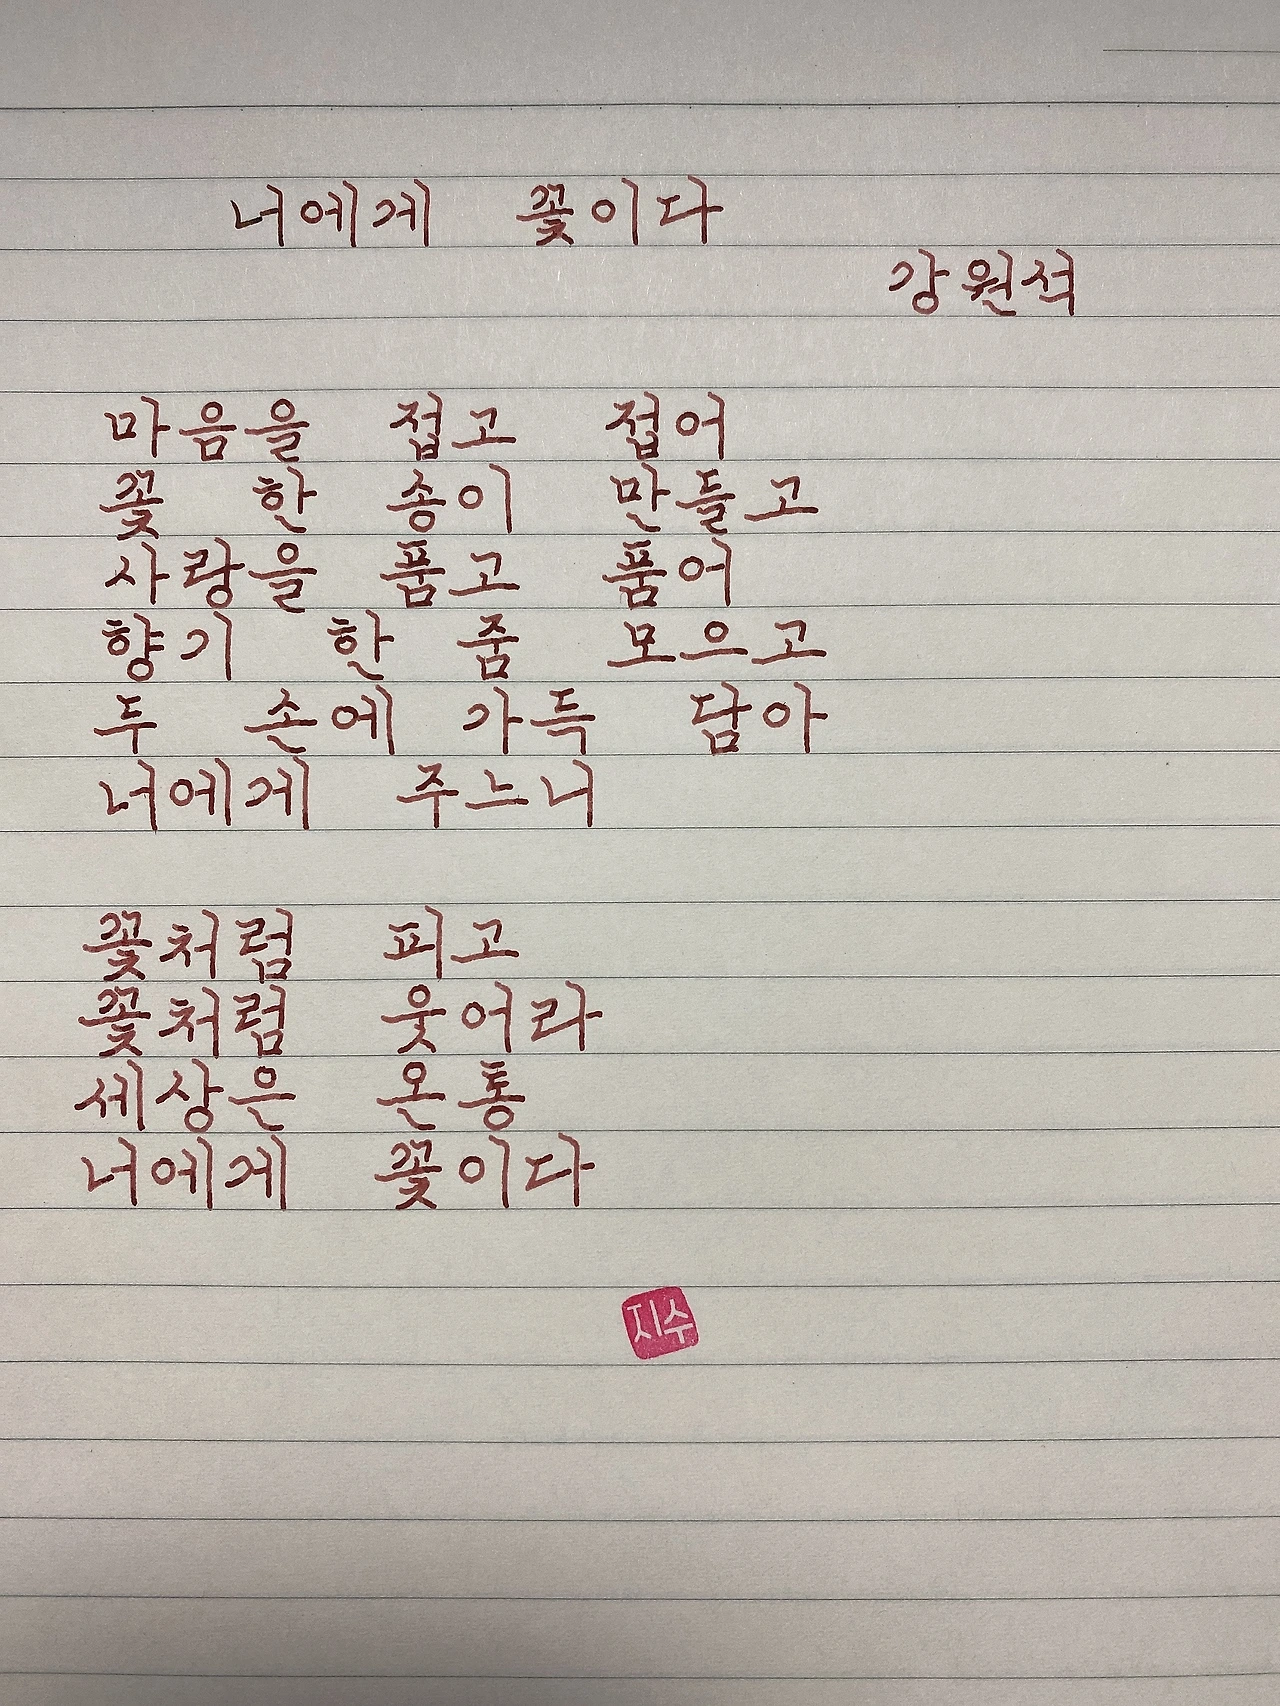 너에게 꽃이다
강원석
마음을 접고 접어
꽃 한 송이 만들고
사랑을 품고 품어
향기 한 줌 모으고
두 손에 가득 담아
너에게 주느니
꽃처럼 피고
꽃처럼 웃어라
세상은 온통
너에게 꽃이다
지수